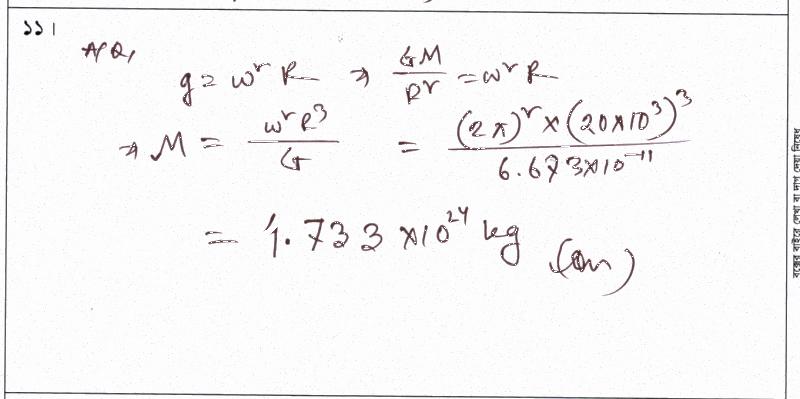 ১১।
A/Q,
g = ω² R ⇒ GM/R² = ω² R
⇒ M = ω²R³/G = (2π)² × (20×10³)³/6.673×10⁻¹¹
= 4.733 ×10²⁴ kg (Ans)
বক্সের বাইরে লেখা বা দাগ দেয়া নিষেধ